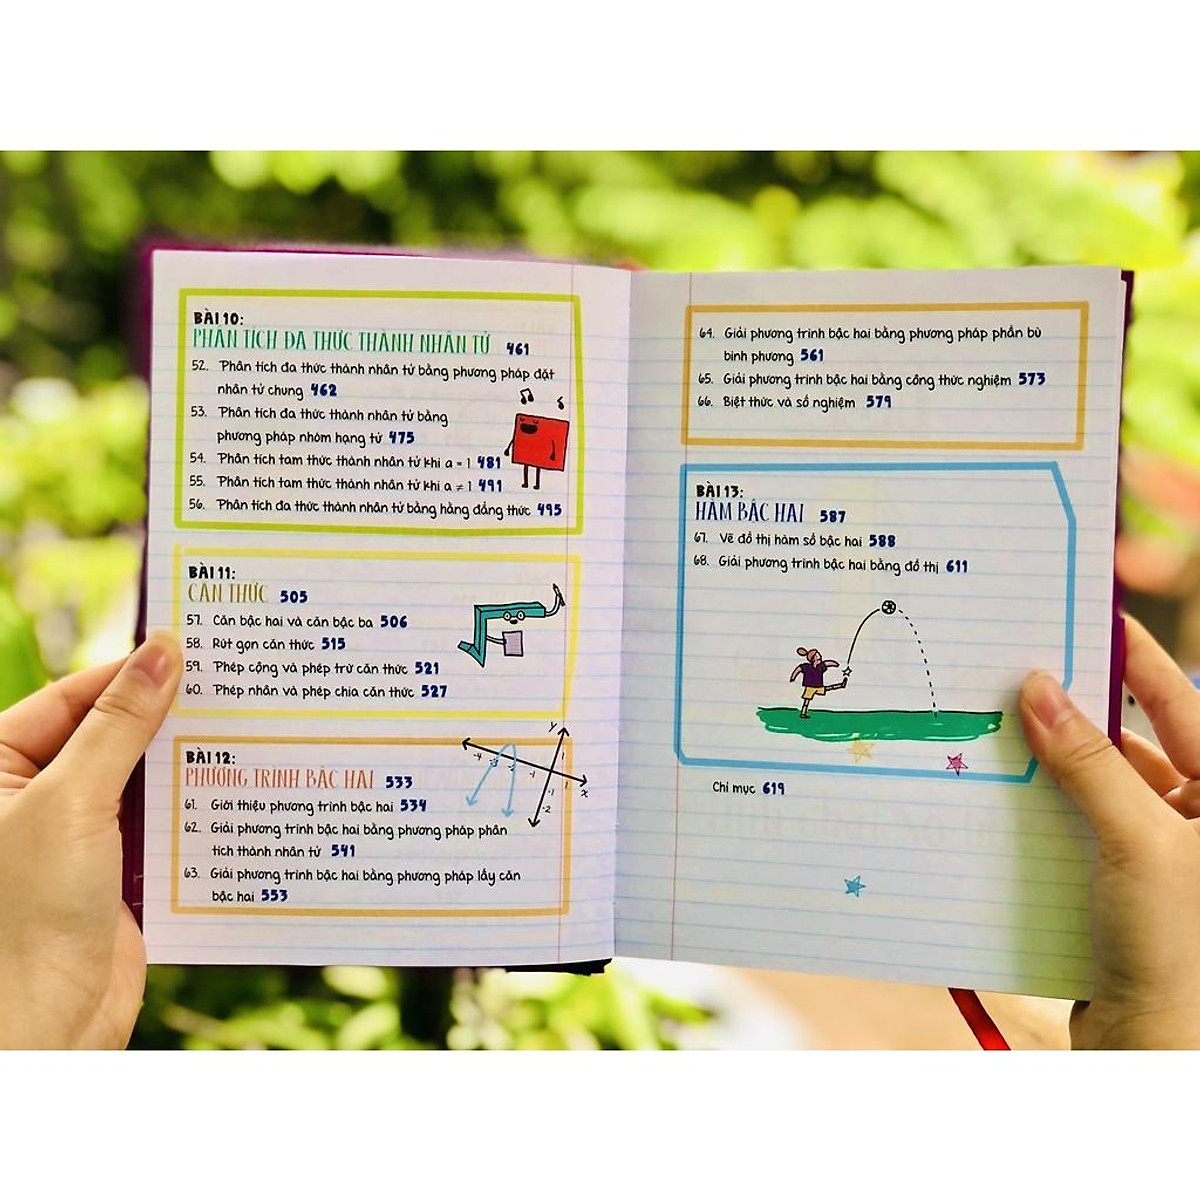 BÀI 10:
PHÂN TÍCH ĐA THỨC THÀNH NHÂN TỬ 461
52. Phân tích đa thức thành nhân tử bằng phương pháp đặt
nhân tử chung 462
53. Phân tích đa thức thành nhân tử bằng
phương pháp nhóm hạng tử 475
54. Phân tích tam thức thành nhân tử khi a = 1 481
55. Phân tích tam thức thành nhân tử khi a ≠ 1 491
56. Phân tích đa thức thành nhân tử bằng hằng đẳng thức 495
BÀI 11:
CĂN THỨC 505
57. Căn bậc hai và căn bậc ba 506
58. Rút gọn căn thức 515
59. Phép cộng và phép trừ căn thức 521
60. Phép nhân và phép chia căn thức 527
BÀI 12:
PHƯƠNG TRÌNH BẬC HAI 533
61. Giới thiệu phương trình bậc hai 534
62. Giải phương trình bậc hai bằng phương pháp phân
tích thành nhân tử 541
63. Giải phương trình bậc hai bằng phương pháp lấy căn
bậc hai 553
y
-4 -3 -2 -1 1 x
1
-1
-2
64. Giải phương trình bậc hai bằng phương pháp phần bù
bình phương 561
65. Giải phương trình bậc hai bằng công thức nghiệm 573
66. Biệt thức và số nghiệm 579
BÀI 13:
HÀM BẬC HAI 587
67. Vẽ đồ thị hàm số bậc hai 588
68. Giải phương trình bậc hai bằng đồ thị 611
Chỉ mục 619